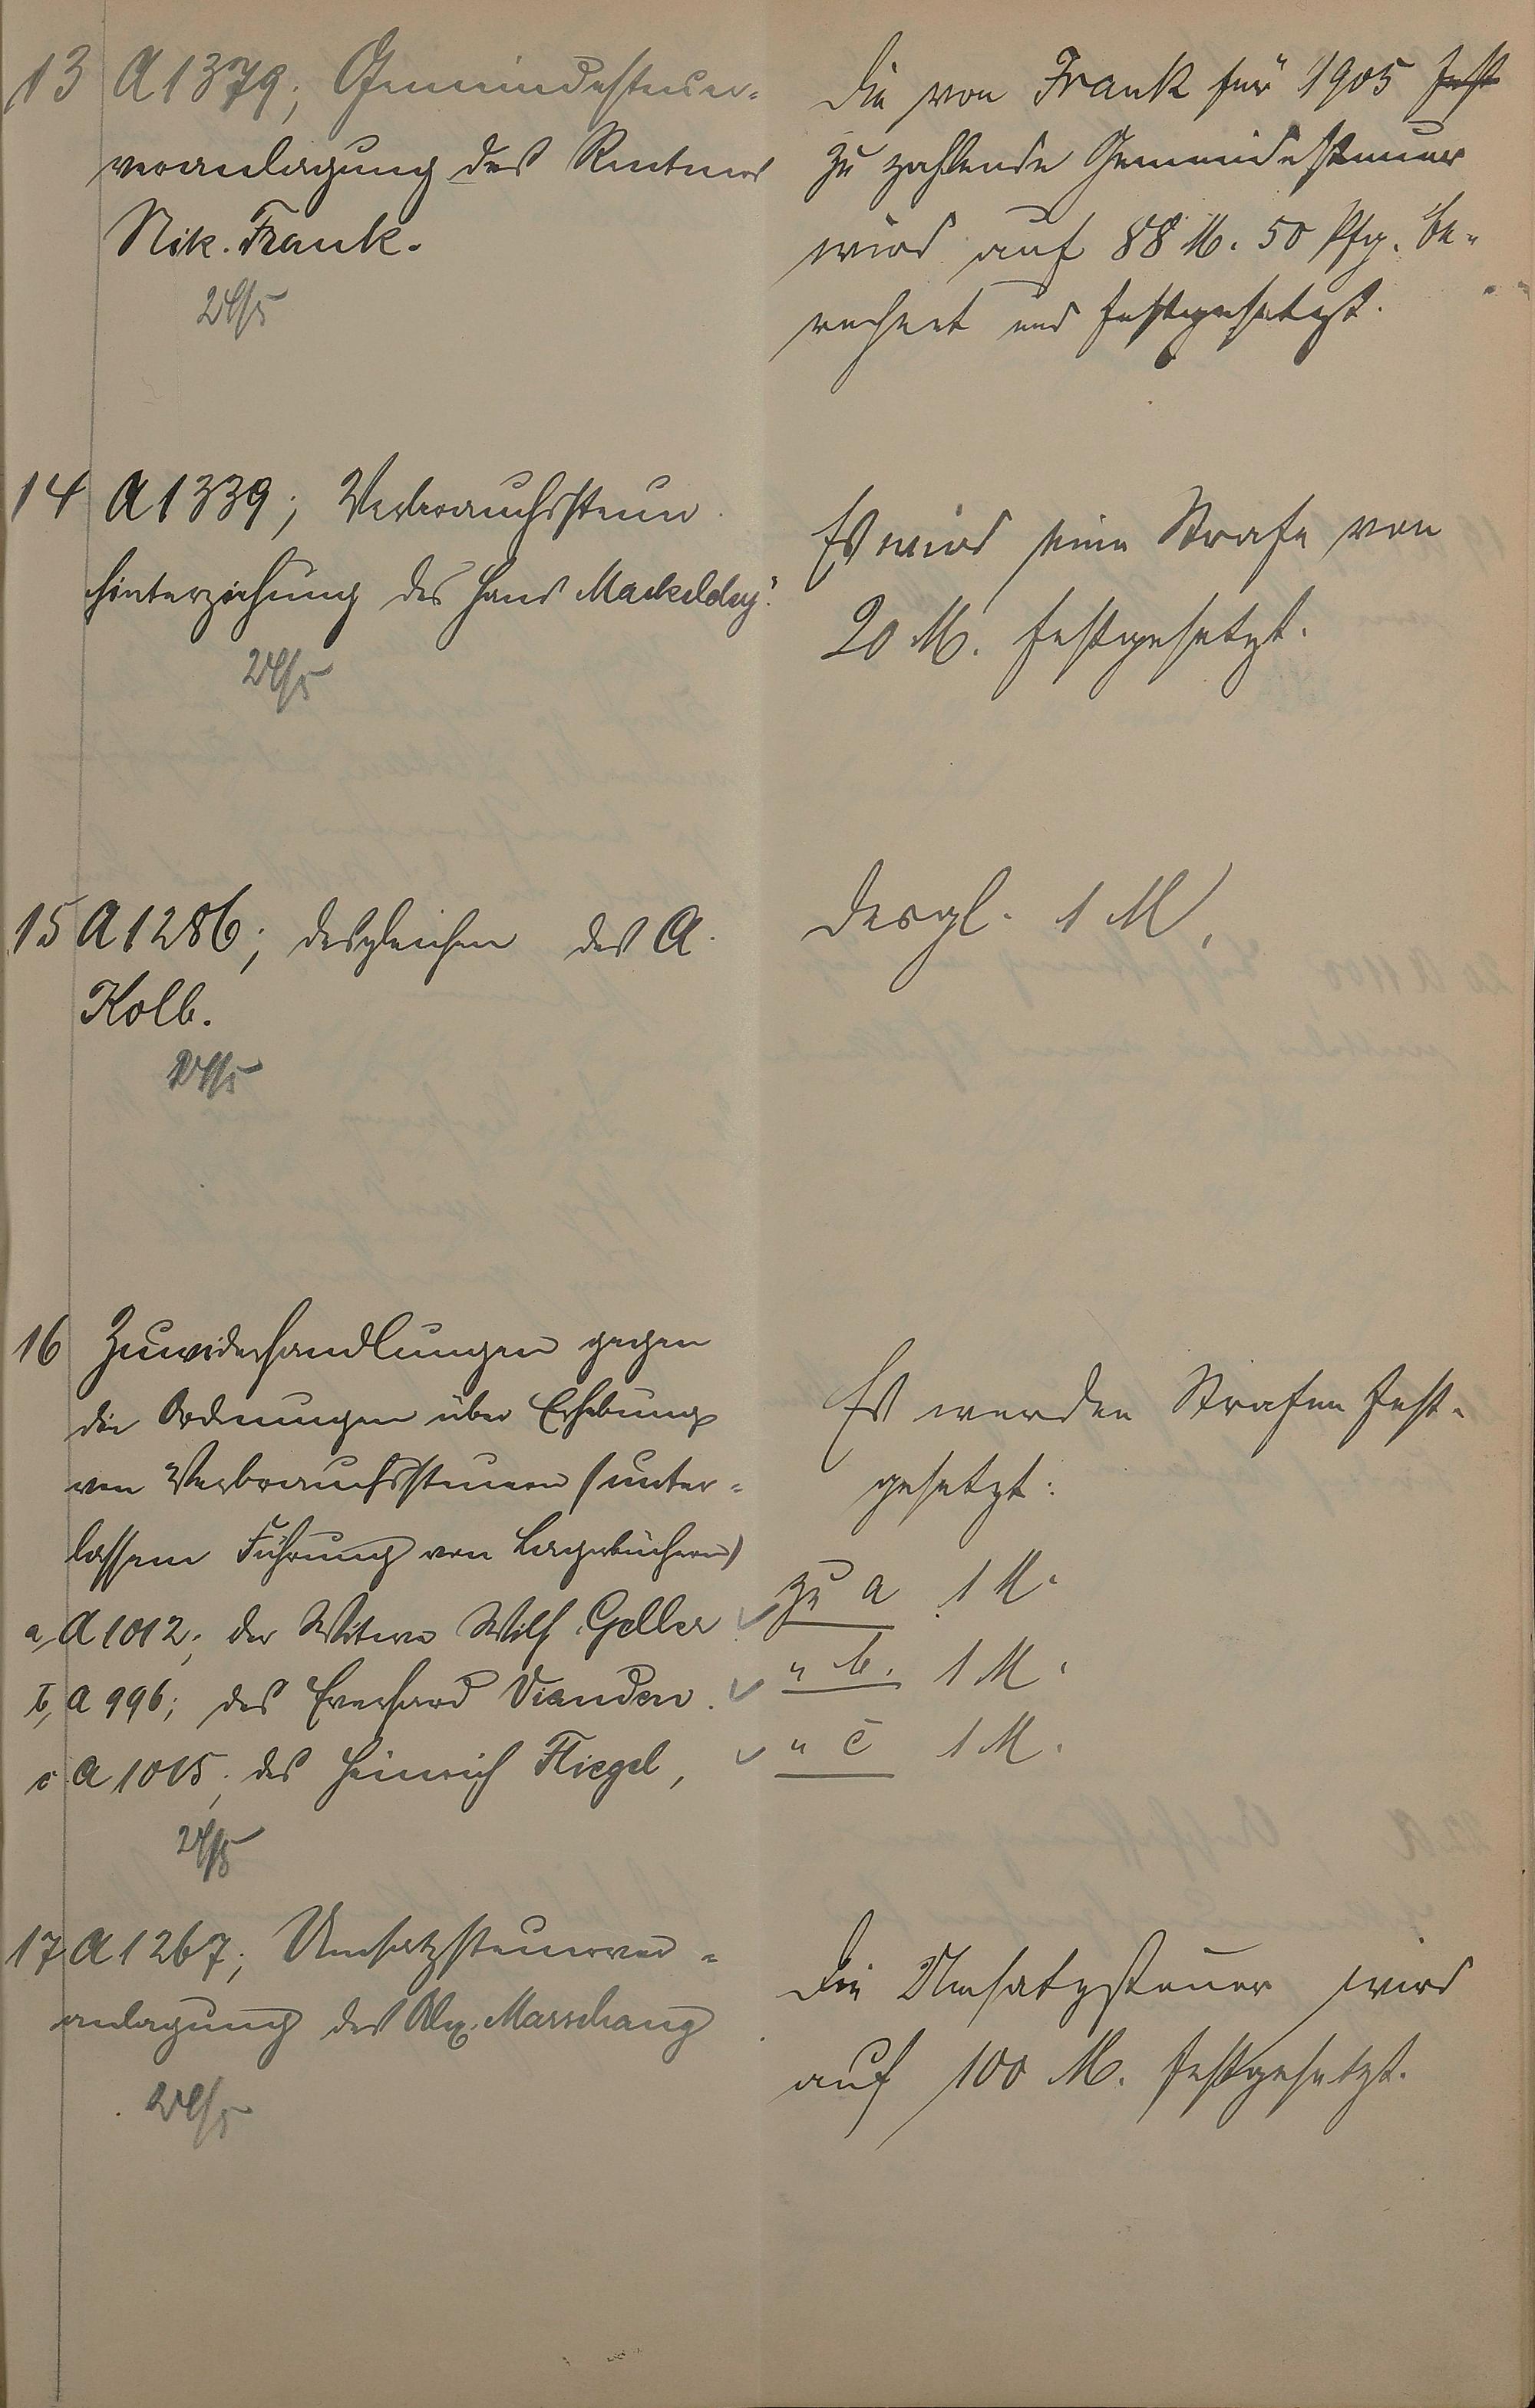 13 A 1379; Gemeindesteuer-
veranlagung des Rentners
Nik. Frank.
24/5
Die von Frank für 1905 fest
zu zahlende Gemeindesteuer
wird auf 88 M. 50 Pfg. be-
rechnet und festgesetzt.
14 A 1339; Verbrauchssteuer
hinterziehung des Hans Mackeldey.
24/5
Es wird eine Strafe von
20 M. festgesetzt.
15 A 1286; desgleichen des A.
Kolb.
24/5
Desgl. 1 M.
16 Zuwiderhandlungen gegen
die Ordnungen über Erhebung
von Verbrauchssteuern (unter-
lassene Führung von Lagerbüchern)
a, A 1012; der Witwe Wilh. Geller
b, A 996; des Everhard Vianden.
c A 1015; des Heinrich Fliegel,
24/5
Es werden Strafen fest-
gesetzt:
zu a 1 M.
" b. 1 M.
" c 1 M.
17 A 1267; Umsatzsteuerver-
anlagung des Alex. Marschang
24/5
Die Umsatzsteuer wird
auf 100 M. festgesetzt.